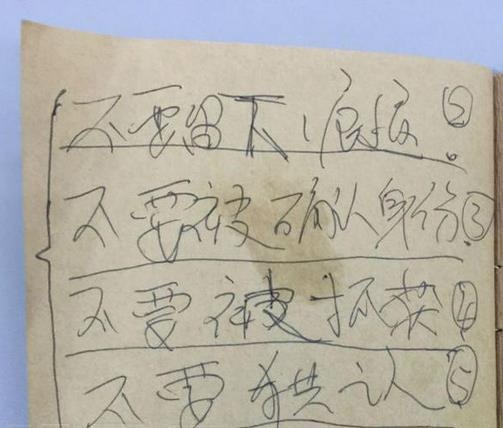 不要留下痕迹②
不要被确认身份③
不要被抓获④
不要供认⑤